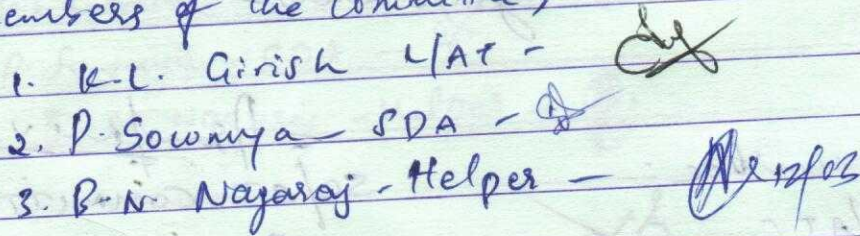 members of the Committee
1. K.L. Girish L/AT -
2. P. Sowmya - SDA -
3. B.N. Nagaraj - Helper - 12/03